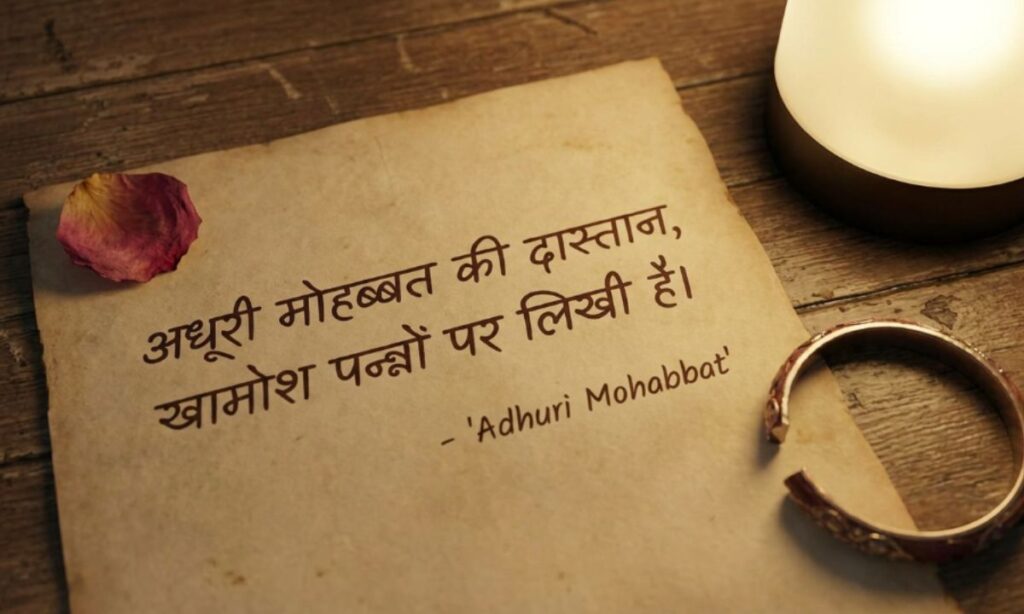 अधूरी मोहब्बत की दास्तान,
खामोश पन्नों पर लिखी है।
- 'Adhuri Mohabbat'